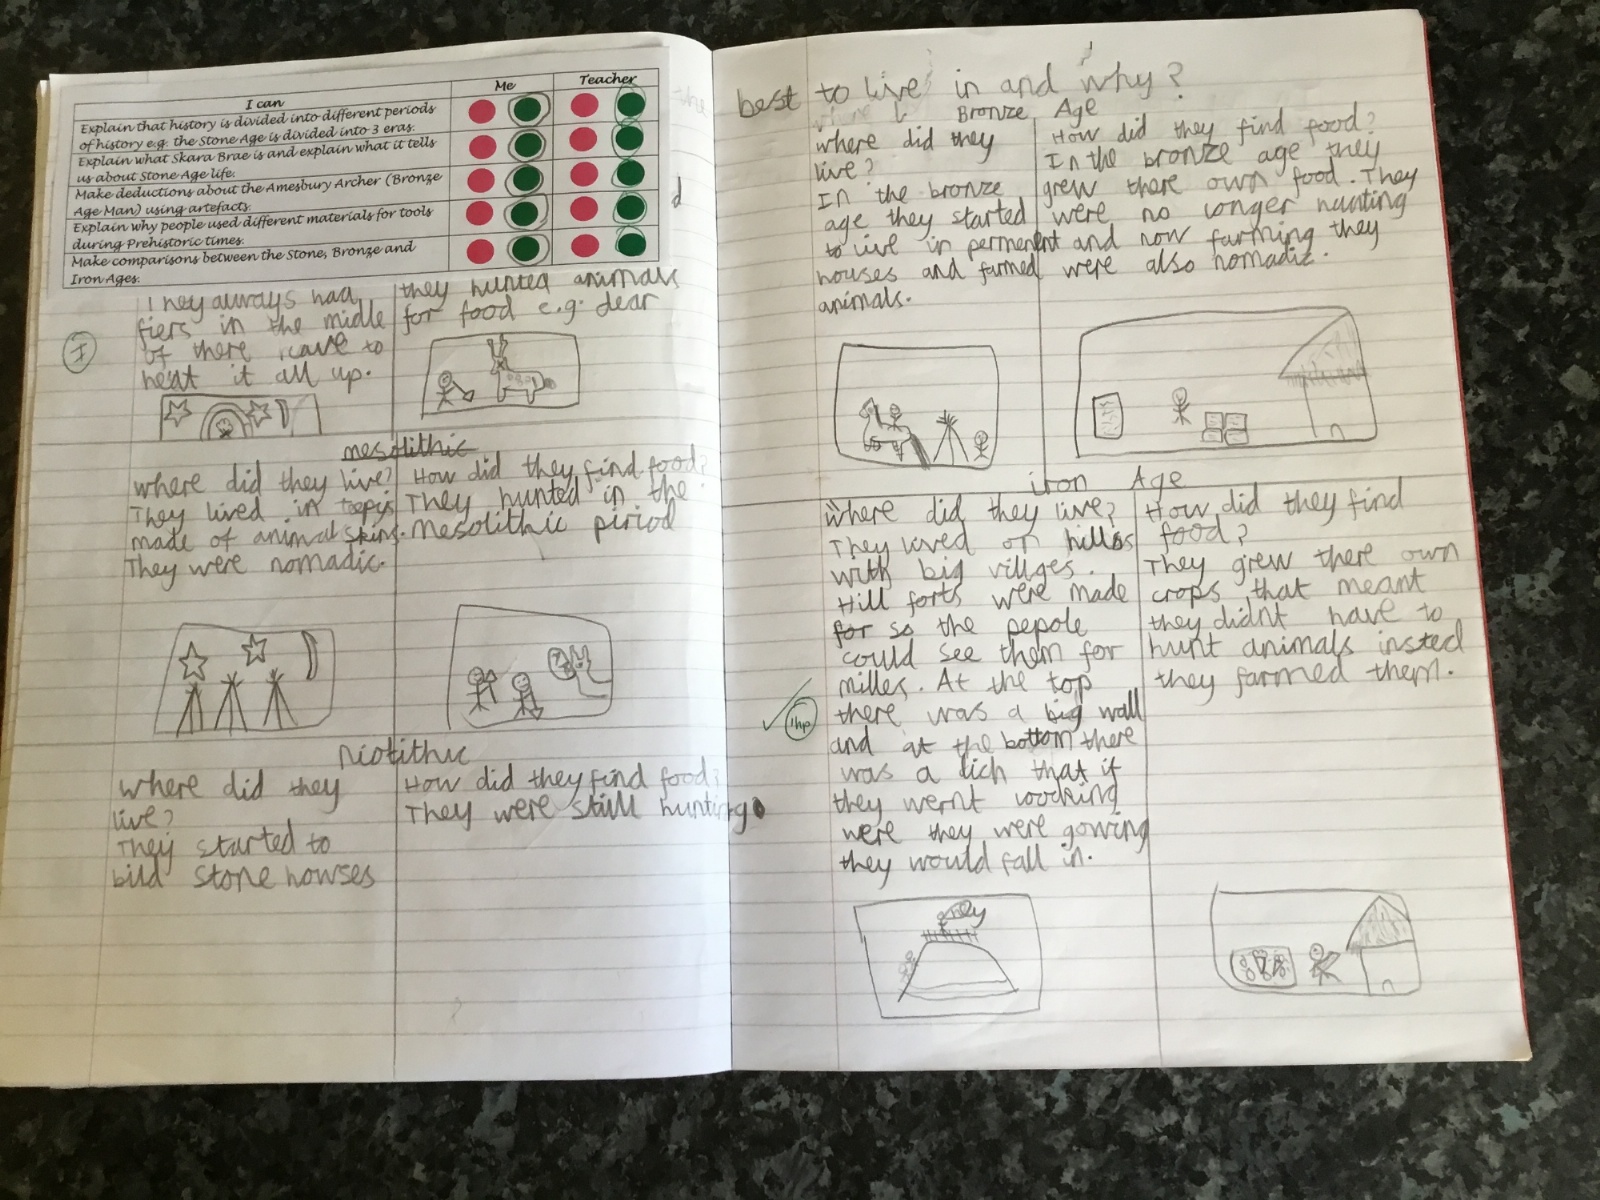 I can
Me
Teacher
Explain that history is divided into different periods
of history e.g. the Stone Age is divided into 3 eras.
Explain what Skara Brae is and explain what it tells
us about Stone Age life.
Make deductions about the Amesbury Archer (Bronze
Age Man) using artefacts.
Explain why people used different materials for tools
during Prehistoric times.
Make comparisons between the Stone, Bronze and
Iron Ages.
the
d
They always had
fiers in the midle
of there cave to
heat it all up.
they hunted animals
for food e.g. dear
I
mesolithic
where did they live?
They lived in teepis
made of animal skins.
They were nomadic.
How did they find food?
They hunted in the
Mesolithic piriod
Niolithic
where did they
live?
They started to
bild stone howses
How did they find food?
They were still hunting.
best to live in and why?
Bronze Age
where did they
live?
In the bronze
age they started
to live in perment
houses and farmed
animals.
How did they find food?
In the bronze age they
grew there own food. They
were no longer hunting
and now farming they
were also nomadic.
iron Age
where did they live?
They lived on hills
with big villges.
Hill forts were made
for so the pepole
could see them for
milles. At the top
there was a big wall
and at the bottom there
was a dich that if
they wernt woocking
were they were gowing
they would fall in.
How did they find
food?
They grew there own
crops that meant
they didnt have to
hunt animals insted
they farmed them.
1hp
hey